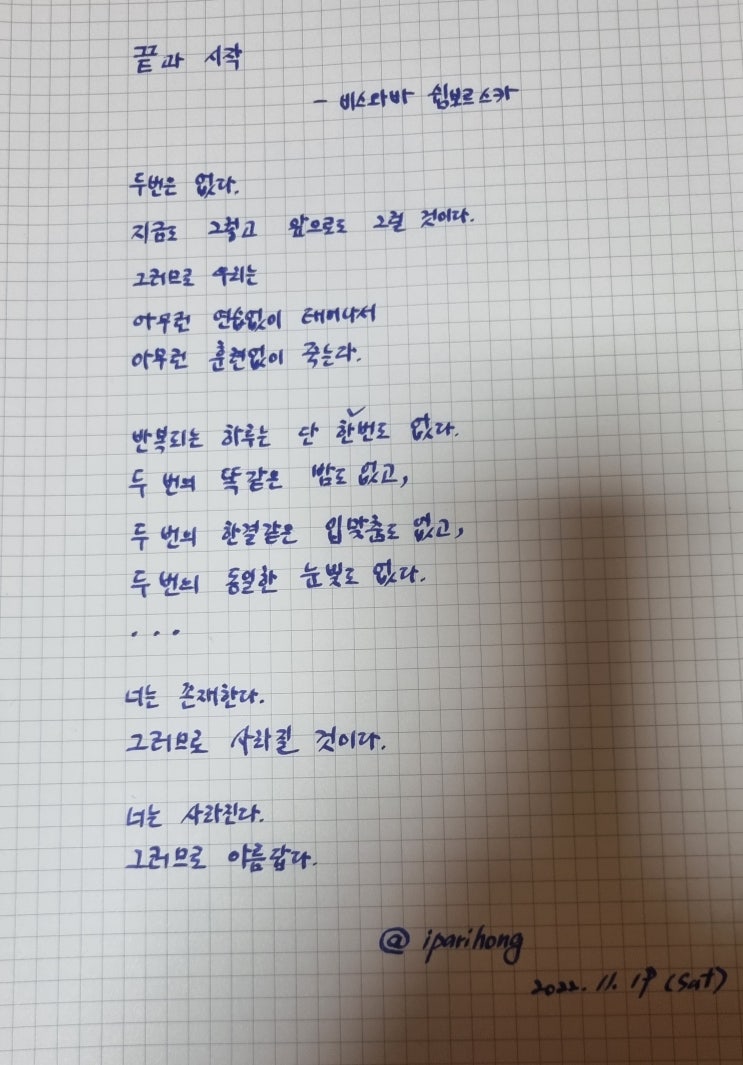 끝과 시작
- 비스와바 쉼보르스카
두번은 없다.
지금도 그렇고 앞으로도 그럴 것이다.
그러므로 우리는
아무런 연습없이 태어나서
아무런 훈련없이 죽는다.
반복되는 하루는 단 한번도 없다.
두 번의 똑같은 밤도 없고,
두 번의 한결같은 입맞춤도 없고,
두 번의 동일한 눈빛도 없다.
...
너는 존재한다.
그러므로 사라질 것이다.
너는 사라진다.
그러므로 아름답다.
@ iparihong
2022. 11. 19 (Sat)